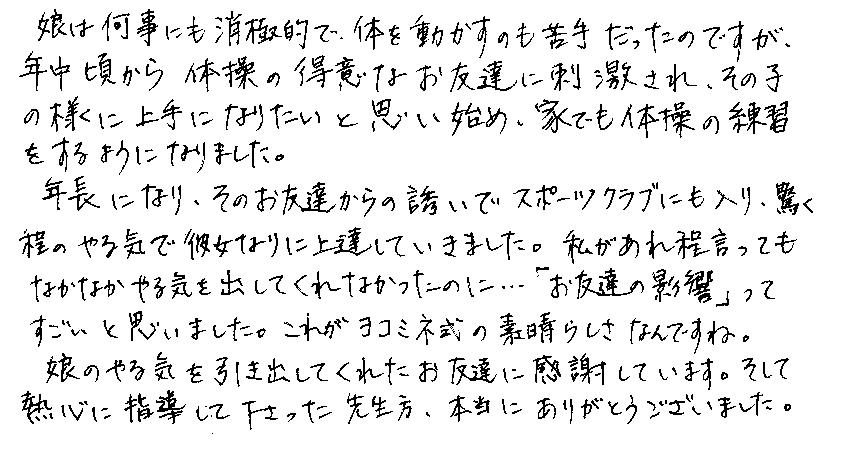 娘は何事にも消極的で、体を動かすのも苦手だったのですが、
年中頃から体操の得意なお友達に刺激され、その子
の様くに上手になりたいと思い始め、家でも体操の練習
をするようになりました。
年長になり、そのお友達からの誘いでスポーツクラブにも入り、驚く
程のやる気で彼女なりに上達していきました。私があれ程言っても
なかなかやる気を出してくれなかったのに…「お友達の影響」って
すごいと思いました。これがヨコミネ式の素晴らしさなんですね。
娘のやる気を引き出してくれたお友達に感謝しています。そして
熱心に指導して下さった先生方、本当にありがとうございました。